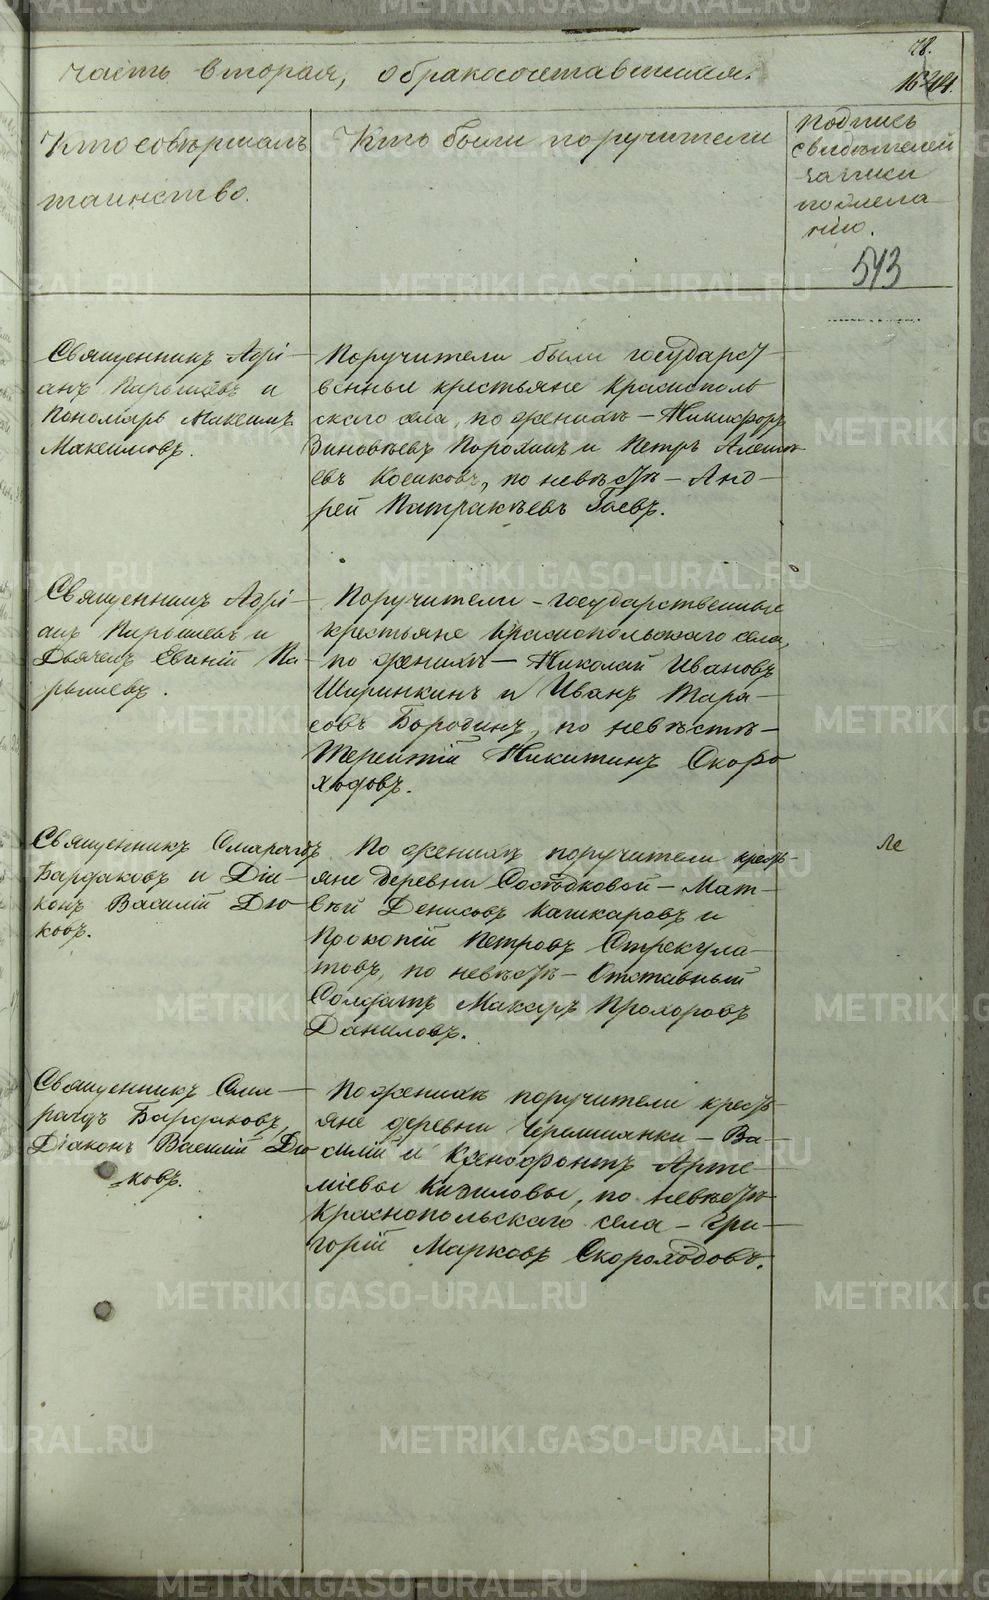 METRIKI.GASO-URAL.RU
78.
часть вторая, о бракосочетавшихся.
Кто совершалъ таинство.
Кто были поручители
Подпись
свидѣтелей
записи
по жела
нію.
543
Священникъ Адрі-
анъ Парышевъ и
Пономарь Максимъ
Максимовъ.
Поручители были государст
венные крестьяне Краснополь
скаго села, по женихѣ – Никифоръ
Зиновьевъ Порохинъ и Петръ
евъ Косиковъ, по невѣстѣ – Анд-
рей Патракѣевъ Гаевъ.
Священникъ Адрі-
анъ Парышевъ и
Дьячекъ Евгеній Па-
рышевъ.
Поручители – государственные
крестьяне Краснопольскаго села,
по женихѣ – Николай Ивановъ
Ширинкинъ и Иванъ Тара-
совъ Бородинъ, по невѣстѣ –
Терентій Никитинъ Скоро
ходовъ.
Священникъ Смарагдъ
Бардаковъ и Діа-
конъ Василій Дю-
ковъ.
По женихѣ поручители кресть-
яне деревни Сосѣдковой – Мат-
вѣй Денисовъ Кашкаровъ и
Прокопій Петровъ Стрекула-
товъ, по невѣстѣ – Отставный
Солдатъ Макаръ Прохоровъ
Даниловъ.
Священникъ Сма-
рагдъ Бардаковъ,
Діаконъ Василій Дю
ковъ.
По женихѣ поручители кресть
яне деревни Черемшанки – Ва-
силій и Ксенофонтъ Арте-
міевы Кизиловы, по невѣстѣ
Краснопольскаго села – Гри-
горій Марковъ Скороходовъ.